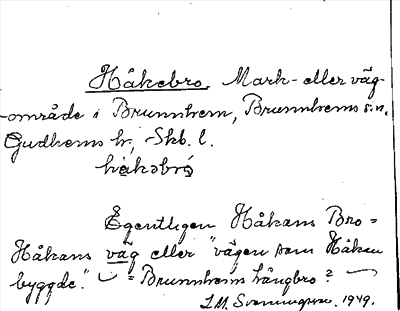 Håkebro, Mark- eller väg-
-område i Brunnhem, Brunnhems sn,
Gudhems hr, Skb. l.
håkəbrò
Egentligen Håkans Bro =
Håkans väg eller "vägen som Håkan
byggde." = Brunnhems långbro?
L.M. Svenungsson. 1949.